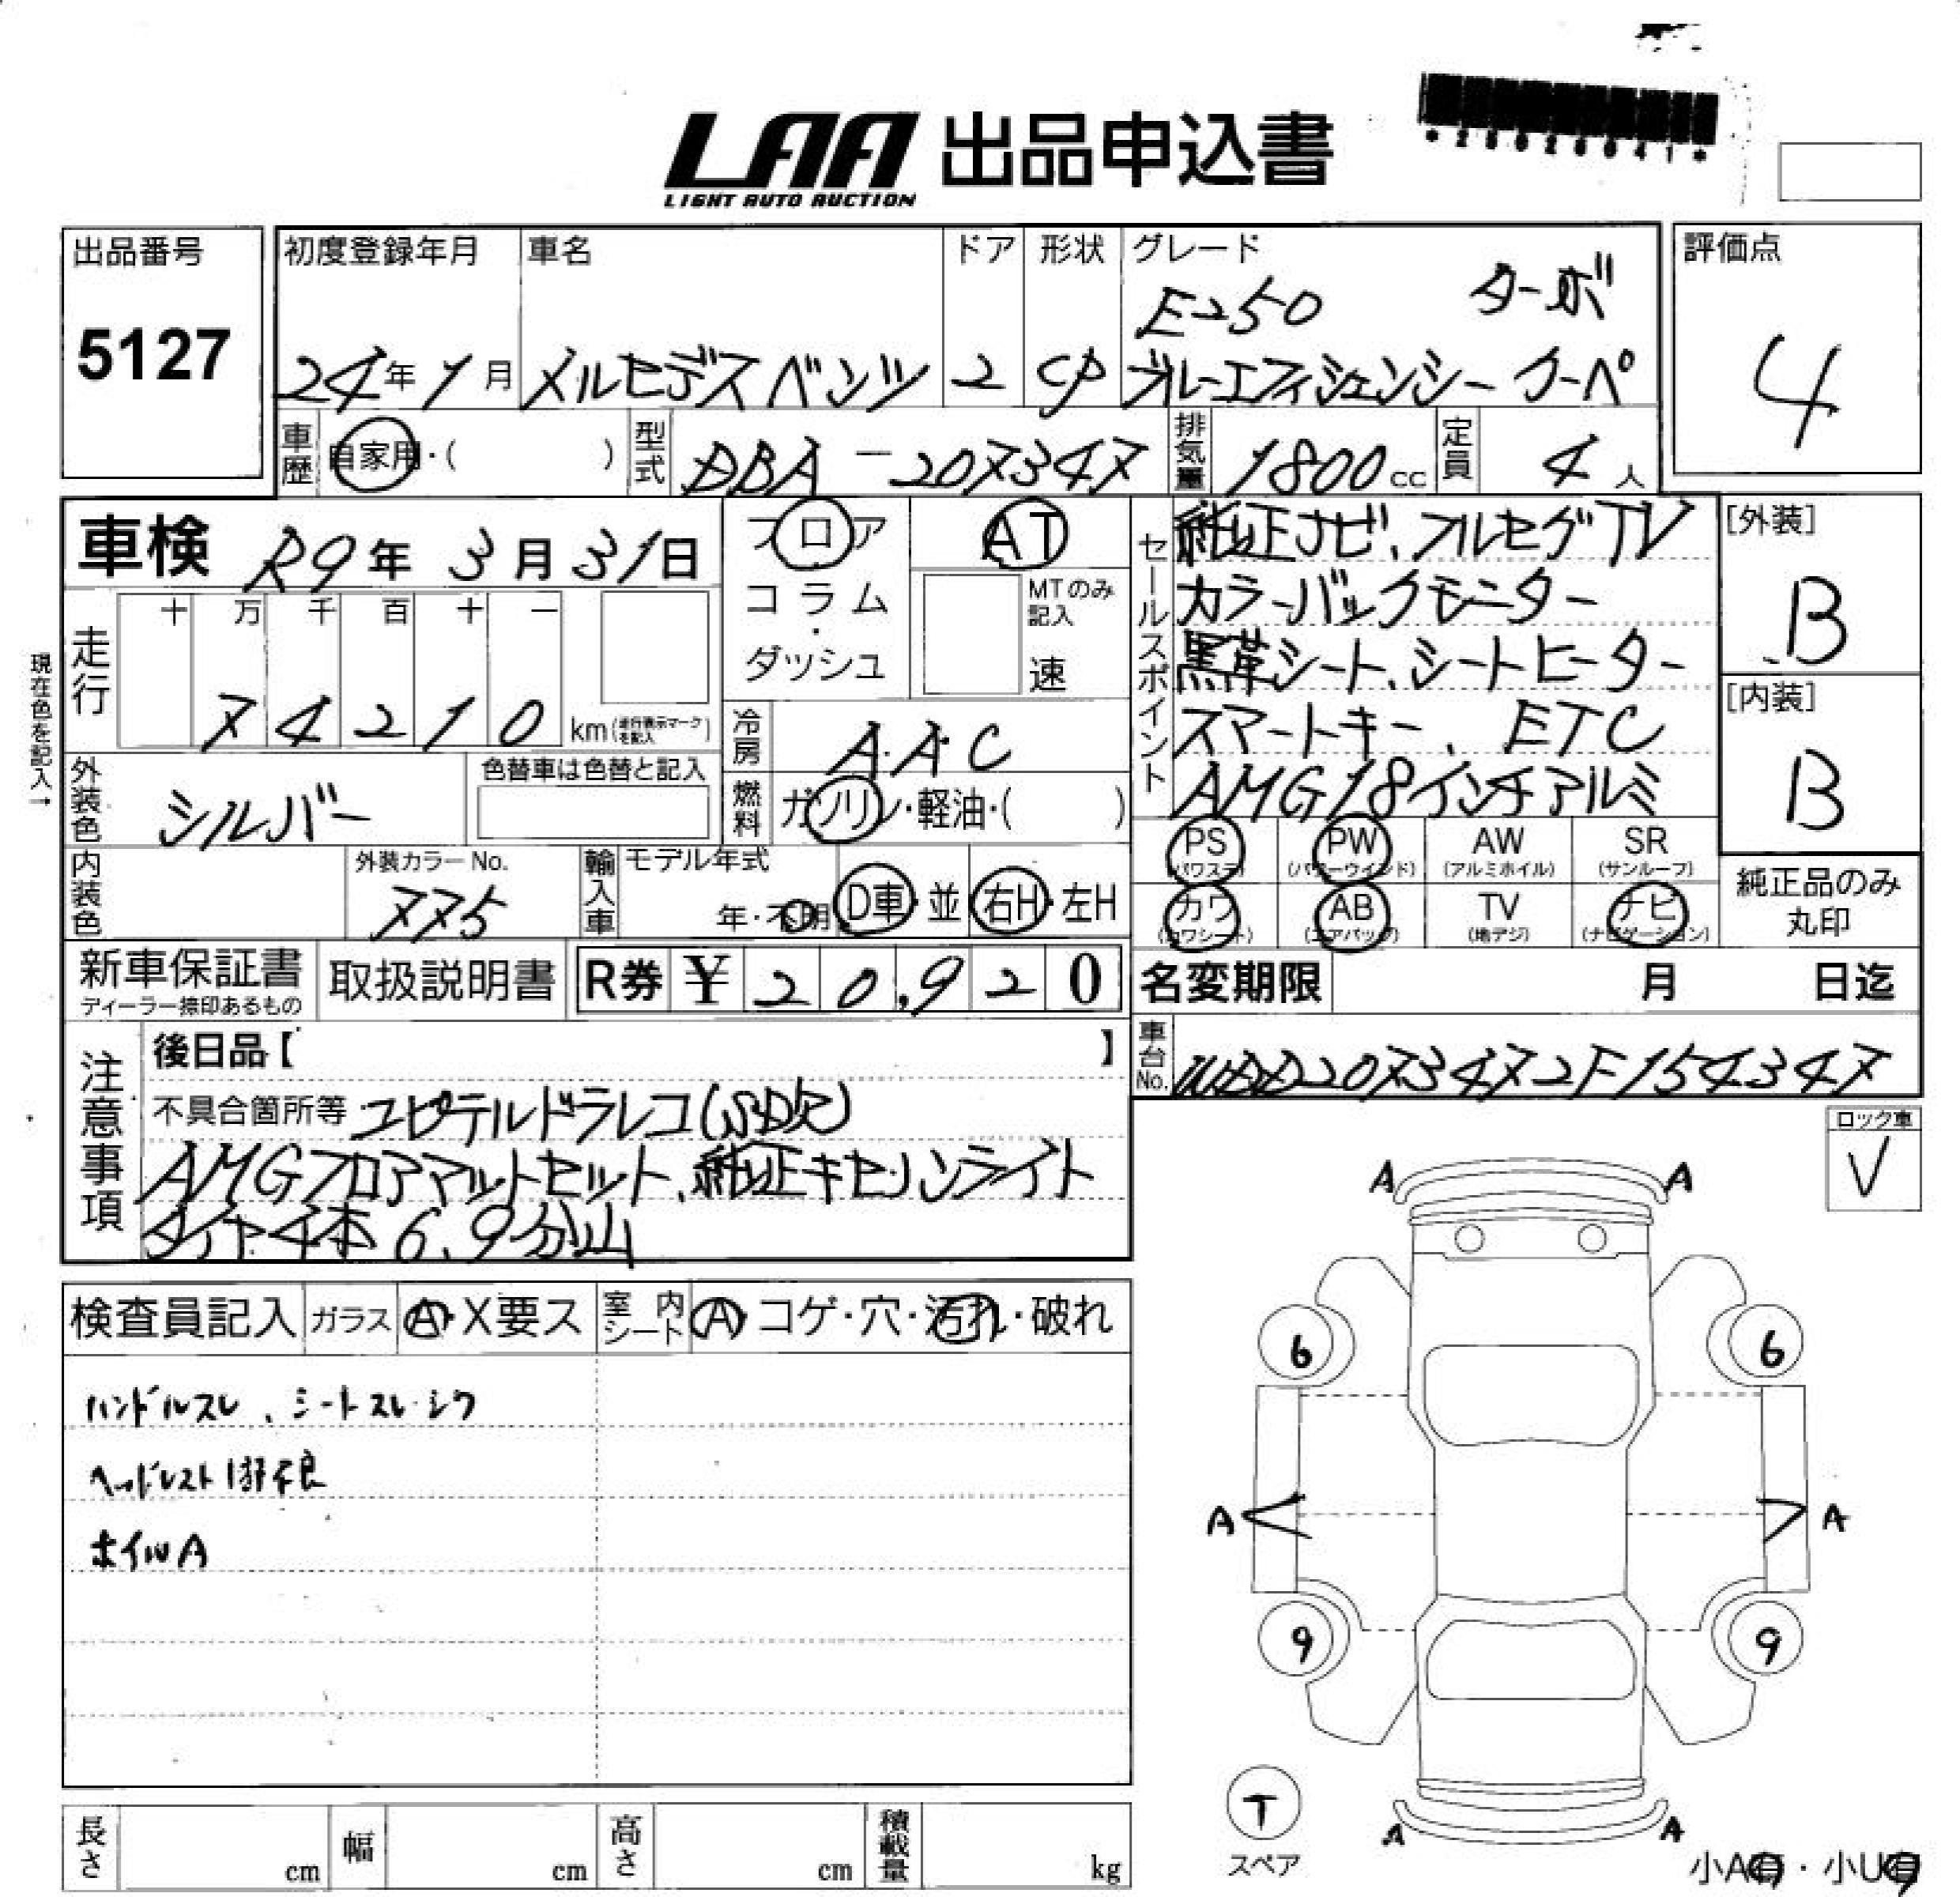 LAA 出品申込書
LIGHT AUTO AUCTION
*28028041*
出品番号
5127
初度登録年月
24年1月
車名
メルセデスベンツ
ドア
2
形状
CP
グレード
E250 ターボ
ブルーエフィシェンシー クーペ
評価点
4
車歴 自家用・( )
型式 DBA-207347
排気量 1800cc
定員 4人
車検 R9年3月31日
フロア
コラム
・
ダッシュ
AT
MTのみ記入
速
現在色を記入→
走行
十 万 千 百 十 一
74210 km(走行表示マークを記入)
冷房 AAC
外装色 シルバー
色替車は色替と記入
燃料 ガソリン・軽油・( )
内装色
外装カラーNo.
775
輸入車
モデル年式
年・不明
D車・並
右H・左H
セールスポイント
純正ナビ、フルセグTV
カラーバックモニター
黒革シート、シートヒーター
スマートキー、ETC
AMG18インチアルミ
[外装]
B
[内装]
B
PS (パワステ) PW (パワーウインド) AW (アルミホイル) SR (サンルーフ)
カワ (カワシート) AB (エアバッグ) TV (地デジ) ナビ (ナビゲーション)
純正品のみ
丸印
新車保証書
ディーラー捺印あるもの
取扱説明書
R券 ¥ 20,920
名変期限 月 日迄
車台No. WDD2073472F154347
注意事項
後日品【 】
不具合箇所等 ユピテルドラレコ(SD欠)
AMGフロアマットセット、純正キセノンライト
タイヤ4本6、9分山
ロック車
V
検査員記入 ガラス A・X要ス 室内シート A・コゲ・穴・汚れ・破れ
ハンドルスレ、シートスレ・シワ
ヘッドレスト開不良
ホイルA
A A
6 6
A A
9 9
T
スペア
A A
小A有・小U有
長さ cm 幅 cm 高さ cm 積載量 kg